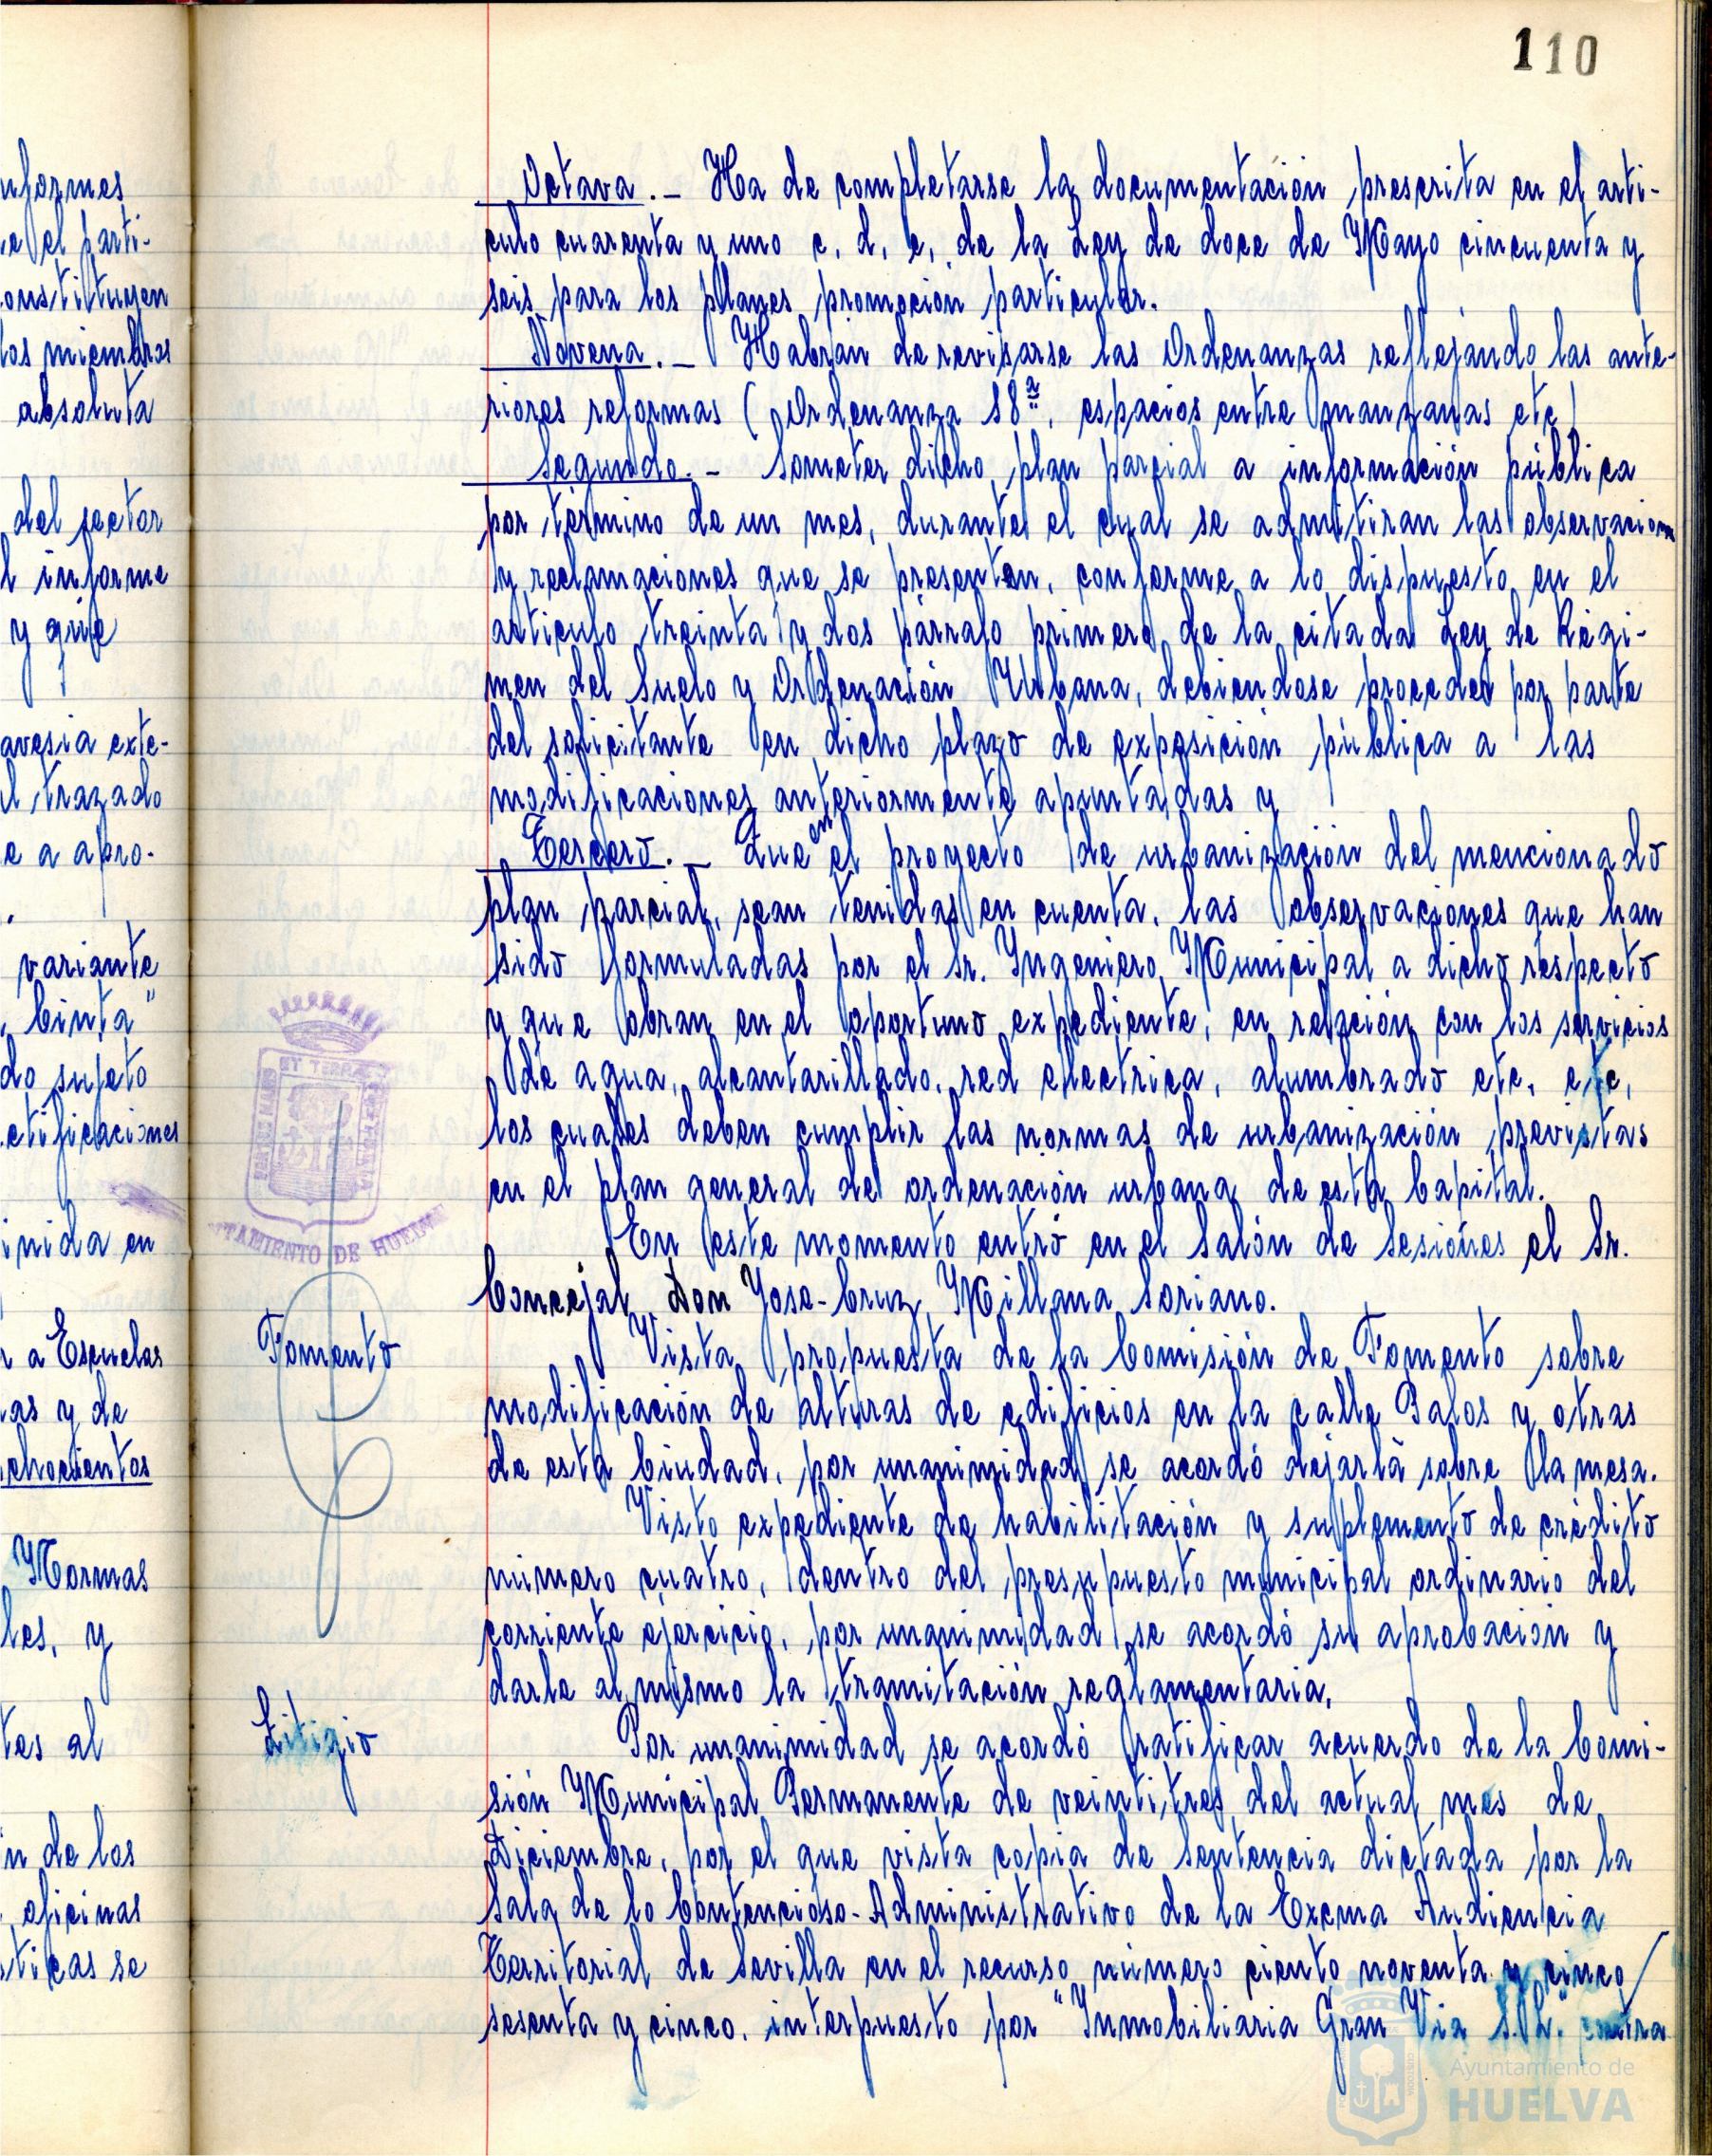 110
nformes
e el parti-
onstituyen
los miembros
absoluta
del sector
l informe
y que
avesia exte-
l trazado
e a apro-
variante
Cinta"
do sujeto
ctificaciones
inida en
r a Escuelas
as y de
ochocientos
Normas
les, y
tes al
n de los
oficinas
ticas se
Octava.- Ha de completarse la documentación prescrita en el arti-
culo cuarenta y uno c, d, e, de la Ley de doce de Mayo cincuenta y
seis para los planes promoción particular.
Novena.- Habrán de revisarse las Ordenanzas reflejando las ante-
riores reformas (Ordenanza 18ª, espacios entre manzanas etc)
Segundo.- Someter dicho plan parcial a información pública
por término de un mes, durante el cual se admitiran las observaciones
y reclamaciones que se presenten, conforme a lo dispuesto en el
articulo treinta y dos párrafo primero de la citada Ley de Régi-
men del Suelo y Ordenación Urbana, debiendose proceder por parte
del solicitante en dicho plazo de exposición pública a las
modificaciones anteriormente apuntadas y
Tercero.- Que en el proyecto de urbanización del mencionado
plan parcial, sean tenidas en cuenta, las observaciones que han
sido formuladas por el Sr. Ingeniero Municipal a dicho respecto
y que obran en el oportuno expediente, en relación con los servicios
de agua, alcantarillado, red electrica, alumbrado etc, etc,
los cuales deben cumplir las normas de urbanización previstas
en el plan general de ordenación urbana de esta Capital.
En este momento entró en el Salón de Sesiones el Sr.
Concejal Don Jose-Cruz Millana Soriano.
AYUNTAMIENTO DE HUELVA
Fomento
Vista propuesta de la Comisión de Fomento sobre
modificación de alturas de edificios en la calle Palos y otras
de esta Ciudad, por unanimidad se acordó dejarla sobre la mesa.
Visto expediente de habilitación y suplemento de crédito
número cuatro, dentro del presupuesto municipal ordinario del
corriente ejercicio, por unanimidad se acordó su aprobación y
darle al mismo la tramitación reglamentaria.
Litigio
Por unanimidad se acordó ratificar acuerdo de la Comi-
sión Municipal Permanente de veintitres del actual mes de
Diciembre, por el que vista copia de Sentencia dictada por la
Sala de lo Contencioso-Administrativo de la Excma Audiencia
Territorial de Sevilla en el recurso número ciento noventa y cinco/
sesenta y cinco, interpuesto por "Inmobiliaria Gran Via S.A." contra
Ayuntamiento de
HUELVA